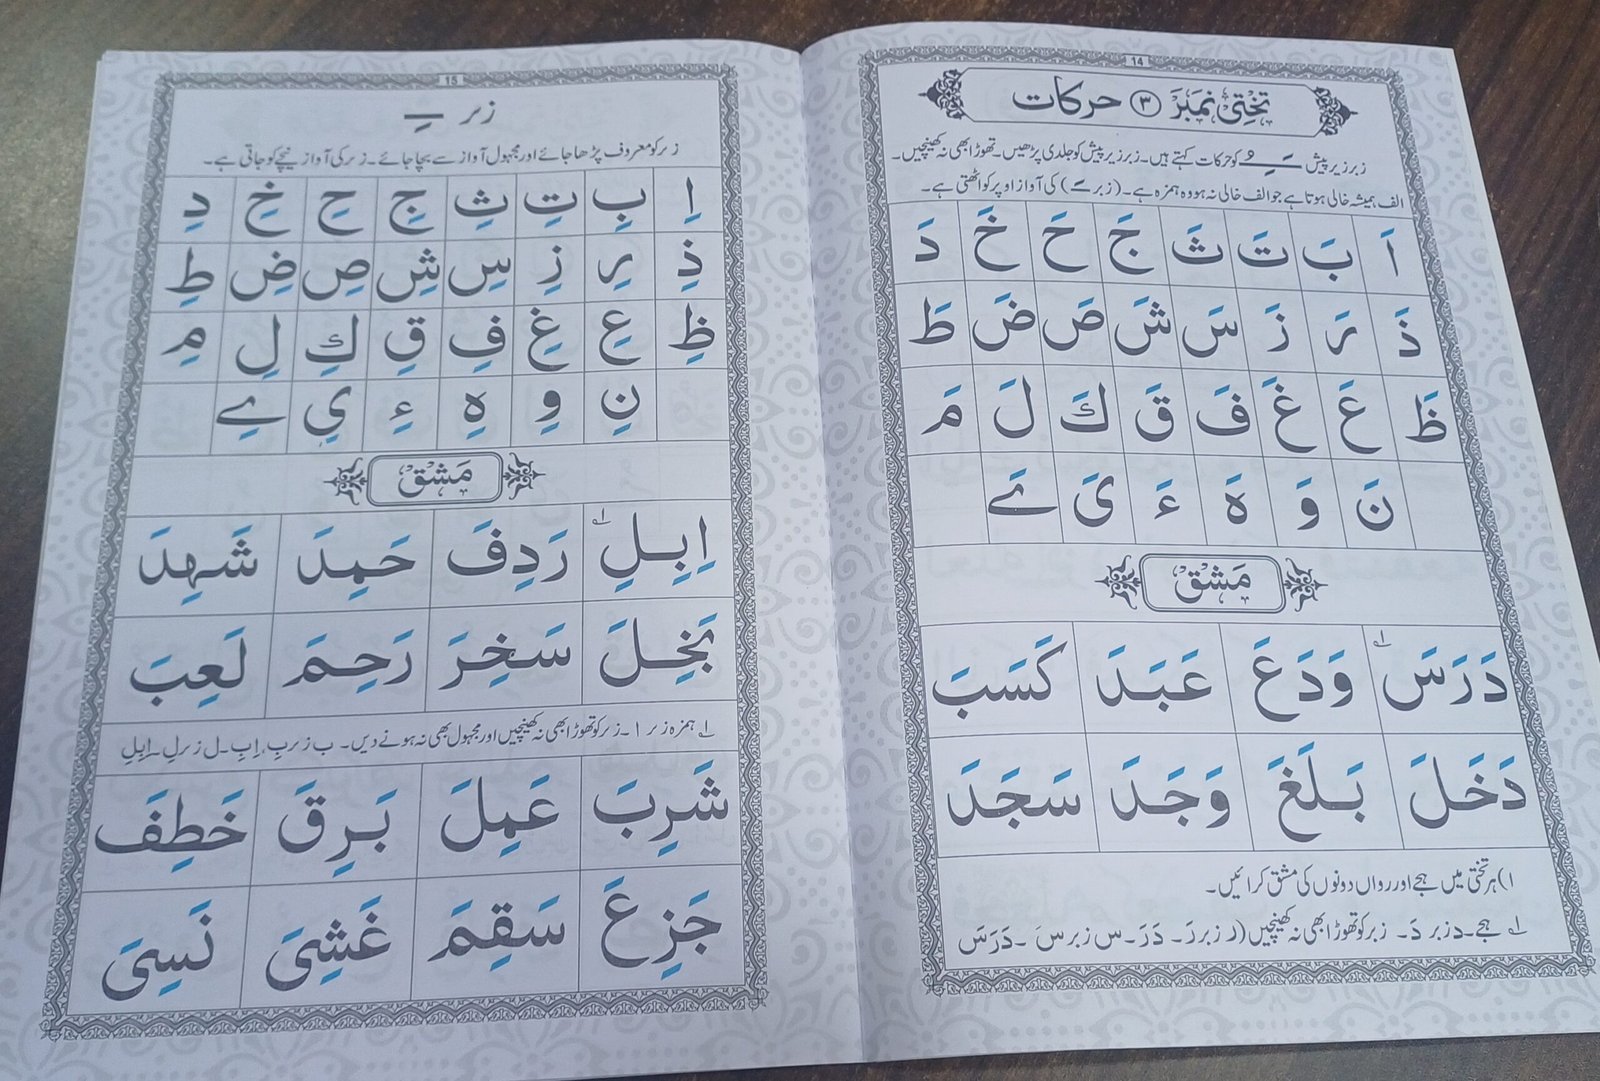 14
تختی نمبر ۳ حرکات
زبر زیر پیش ـَـِـُ کو حرکات کہتے ہیں۔ زبر زیر پیش کو جلدی پڑھیں۔ تھوڑا بھی نہ کھینچیں۔
الف ہمیشہ خالی ہوتا ہے جو الف خالی نہ ہو وہ ہمزہ ہے۔ (زبر ـَ) کی آواز اوپر کو اٹھتی ہے۔
اَ بَ تَ ثَ جَ حَ خَ دَ
ذَ رَ زَ سَ شَ صَ ضَ طَ
ظَ عَ غَ فَ قَ كَ لَ مَ
نَ وَ هَ ءَ یَ ےَ
مَشْق
دَرَسَ وَدَعَ عَبَدَ كَسَبَ
دَخَلَ بَلَغَ وَجَدَ سَجَدَ
۱) ہر تختی میں ہجے اور رواں دونوں کی مشق کرائیں۔
۱ ہجے۔ د زبر دَ۔ زبر کو تھوڑا بھی نہ کھینچیں (ر زبر رَ۔ دَرَ۔ س زبر سَ۔ دَرَسَ
15
زیر ـِ
زیر کو معروف پڑھا جائے اور مجہول آواز سے بچا جائے۔ زیر کی آواز نیچے کو جاتی ہے۔
اِ بِ تِ ثِ جِ حِ خِ دِ
ذِ رِ زِ سِ شِ صِ ضِ طِ
ظِ عِ غِ فِ قِ كِ لِ مِ
نِ وِ هِ ءِ یِ ےِ
مَشْق
اِبِلِ رَدِفَ حَمِدَ شَهِدَ
بَخِلَ سَخِرَ رَحِمَ لَعِبَ
۱ ہمزہ زیر اِ۔ زیر کو تھوڑا بھی نہ کھینچیں اور مجہول بھی نہ ہونے دیں۔ ب زیر بِ، اِبِ۔ ل زیر لِ۔ اِبِلِ
شَرِبَ عَمِلَ بَرِقَ خَطِفَ
جَزِعَ سَقِمَ غَشِیَ نَسِیَ